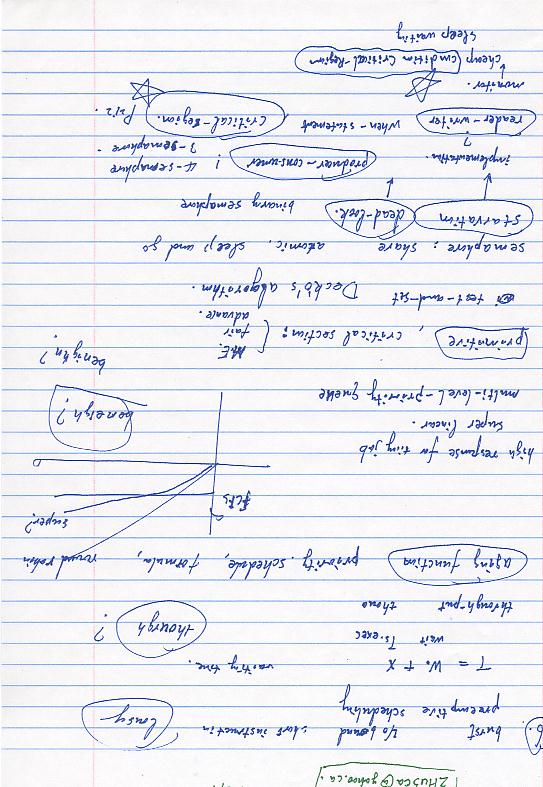 zhuscq@yahoo.ca
6. burst I/O bound short instruction lousy
preemptive scheduling
T = W. + X waiting time.
wait Ts.exec though ?
through-put
aging function priority. schedule, formula, round robin
FCFS super?
high response for tiny job
super linear.
multi-level-priority queue beneigh?
benighn?
primitive, critical section: { M.E. fair advance.
test-and-set Deckb's algorithm.
semaphore: share atomic. sleep and go
starvation dead-lock. binary semaphore
implementation. producer-consumer ! 4-semaphore
? 3-semaphore.
reader-writer when-statement critical-region. P212.
monitor.
cheap condition critical-Region
sleep waiting